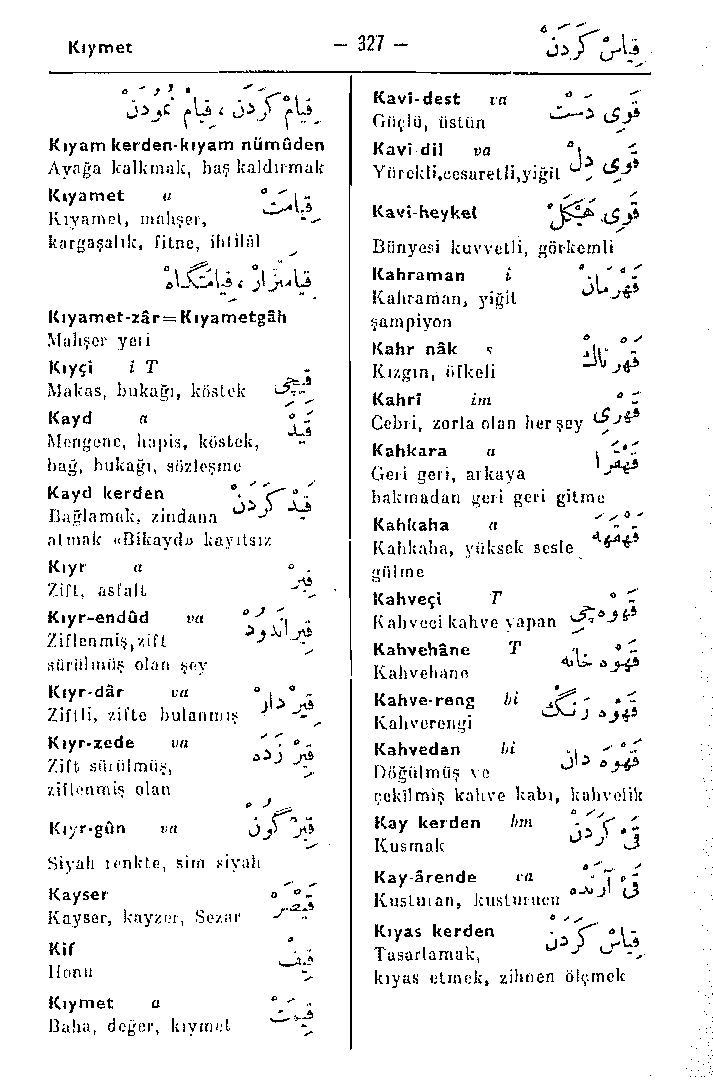 Kıymet — 327 — قِیَاسْ کَرْدَنْ
قِیَامْ کَرْدَنْ ، قِیَامْ نُمُودَنْ
Kıyam kerden-kıyam nümûden
Ayağa kalkmak, baş kaldırmak
Kıyamet a قِیَامَتْ
Kıyamet, mahşer,
kargaşalık, fitne, ihtilâl
قِیَامَتْزَارْ ، قِیَامَتْگَاهْ
Kıyamet-zâr=Kıyametgâh
Mahşer yeri
Kıyçi i T قَیْچِی
Makas, bukağı, köstek
Kayd a قَیْدْ
Mengene, hapis, köstek,
bağ, bukağı, sözleşme
Kayd kerden قَیْدْ کَرْدَنْ
Bağlamak, zindana
atmak «Bikayd» kayıtsız
Kıyr a قِیرْ
Zift, asfalt
Kıyr-endûd va قِیرْ اَنْدُودْ
Ziftlenmiş,zift
sürülmüş olan şey
Kıyr-dâr va قِیرْ دَارْ
Ziftli, zifte bulanmış
Kıyr-zede va قِیرْ زَدَه
Zift sürülmüş,
ziftlenmiş olan
Kıyr-gûn va قِیرْ گُونْ
Siyah renkte, sim siyah
Kayser قَیْصَرْ
Kayser, kayzer, Sezar
Kif قِیفْ
Honu
Kıymet a قِیمَتْ
Baha, değer, kıymet
Kavî-dest va قَوِی دَسْتْ
Güçlü, üstün
Kavî dil va قَوِی دِلْ
Yürekli,cesaretli,yiğit
Kavî-heykel قَوِی هَیْکَلْ
Bünyesi kuvvetli, görkemli
Kahraman i قَهْرَمَانْ
Kahraman, yiğit
şampiyon
Kahr nâk s قَهْرْ نَاكْ
Kızgın, öfkeli
Kahrî im قَهْرِی
Cebri, zorla olan her şey
Kahkara a قَهْقَرَا
Geri geri, arkaya
bakmadan geri geri gitme
Kahkaha a قَهْقَهَه
Kahkaha, yüksek sesle
gülme
Kahveçi T قَهْوَه چِی
Kahveci kahve yapan
Kahvehâne T قَهْوَه خَانَه
Kahvehane
Kahve-reng bi قَهْوَه رَنْگْ
Kahverengi
Kahvedan bi قَهْوَه دَانْ
Döğülmüş ve
çekilmiş kahve kabı, kahvelik
Kay kerden hm قَیْ کَرْدَنْ
Kusmak
Kay-ârende va قَیْ آرَنْدَه
Kusturan, kusturucu
Kıyas kerden قِیَاسْ کَرْدَنْ
Tasarlamak,
kıyas etmek, zihnen ölçmek